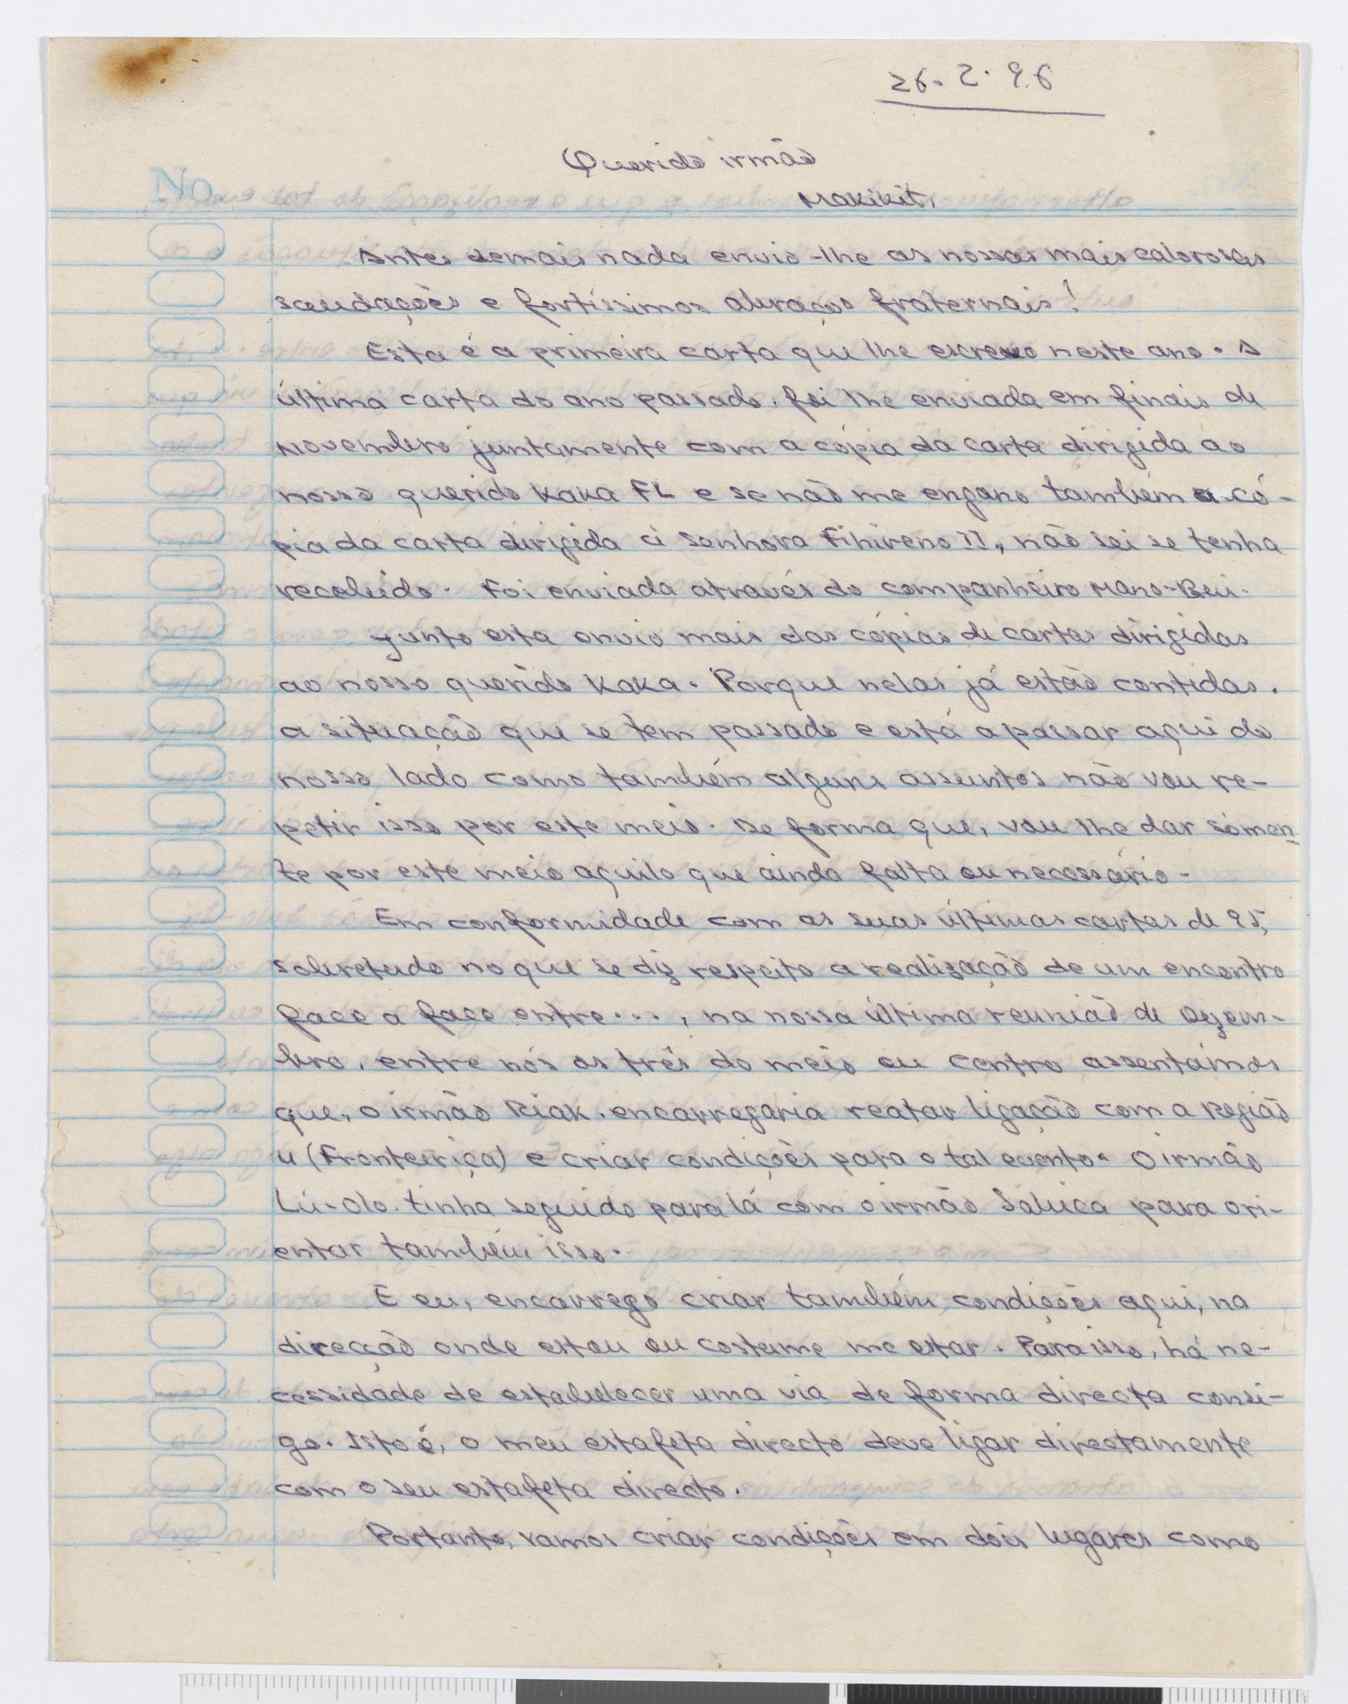 26.2.96
Querido irmão
Makikit,
No
Antes demais nada envio-lhe as nossas mais calorosas
saudações e fortíssimos abraços fraternais!
Esta é a primeira carta que lhe escrevo neste ano. A
última carta do ano passado, foi lhe enviada em finais de
Novembro juntamente com a cópia da carta dirigida ao
nosso querido Kaka FL e se não me engano também a có-
pia da carta dirigida à senhora Fihireno II, não sei se tenha
recebido. Foi enviada através do companheiro Mano-Bui.
Junto esta envio mais das cópias de cartas dirigidas
ao nosso querido Kaka. Porque nelas já estão contidas.
a situação que se tem passado e está a passar aqui do
nosso lado como também alguns assuntos não vou re-
petir isso por este meio. De forma que, vou lhe dar sómen-
te por este meio aquilo que ainda falta ou necessário.
Em conformidade com as suas últimas cartas de 95,
sobretudo no que se diz respeito a realização de um encontro
face a face entre..., na nossa última reunião de Dezem-
bro, entre nós os três do meio ou centro assentámos
que, o irmão Riak, encarregaria reatar ligação com a Região
U (Fronteiriça) e criar condições para o tal evento. O irmão
Lú-Olo tinha seguido para lá com o irmão Sabica para ori-
entar também isso.
E eu, encarrego criar também condições aqui, na
direcção onde estou ou costume me estar. Para isso, há ne-
cessidade de estabelecer uma via de forma directa consi-
go. Isto é, o meu estafeta directo deve ligar directamente
com o seu estafeta directo.
Portanto, vamos criar condições em dois lugares como